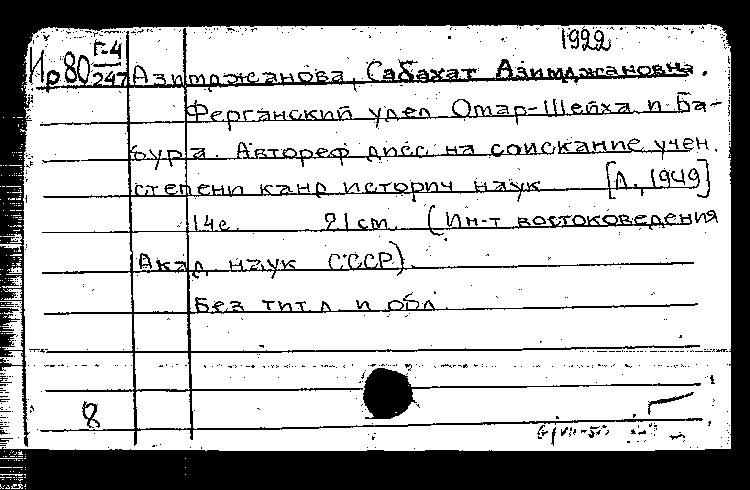 1922
Ир80 Г-4/247 Азимджанова, Сабахат Азимджановна.
Ферганский удел Омар-Шейха и Ба-
бура. Автореф дисс. на соискание учен.
степени канд историч наук [Л., 1949]
14с. 21см. (Ин-т востоковедения
Акад наук СССР).
Без тит л и обл
8